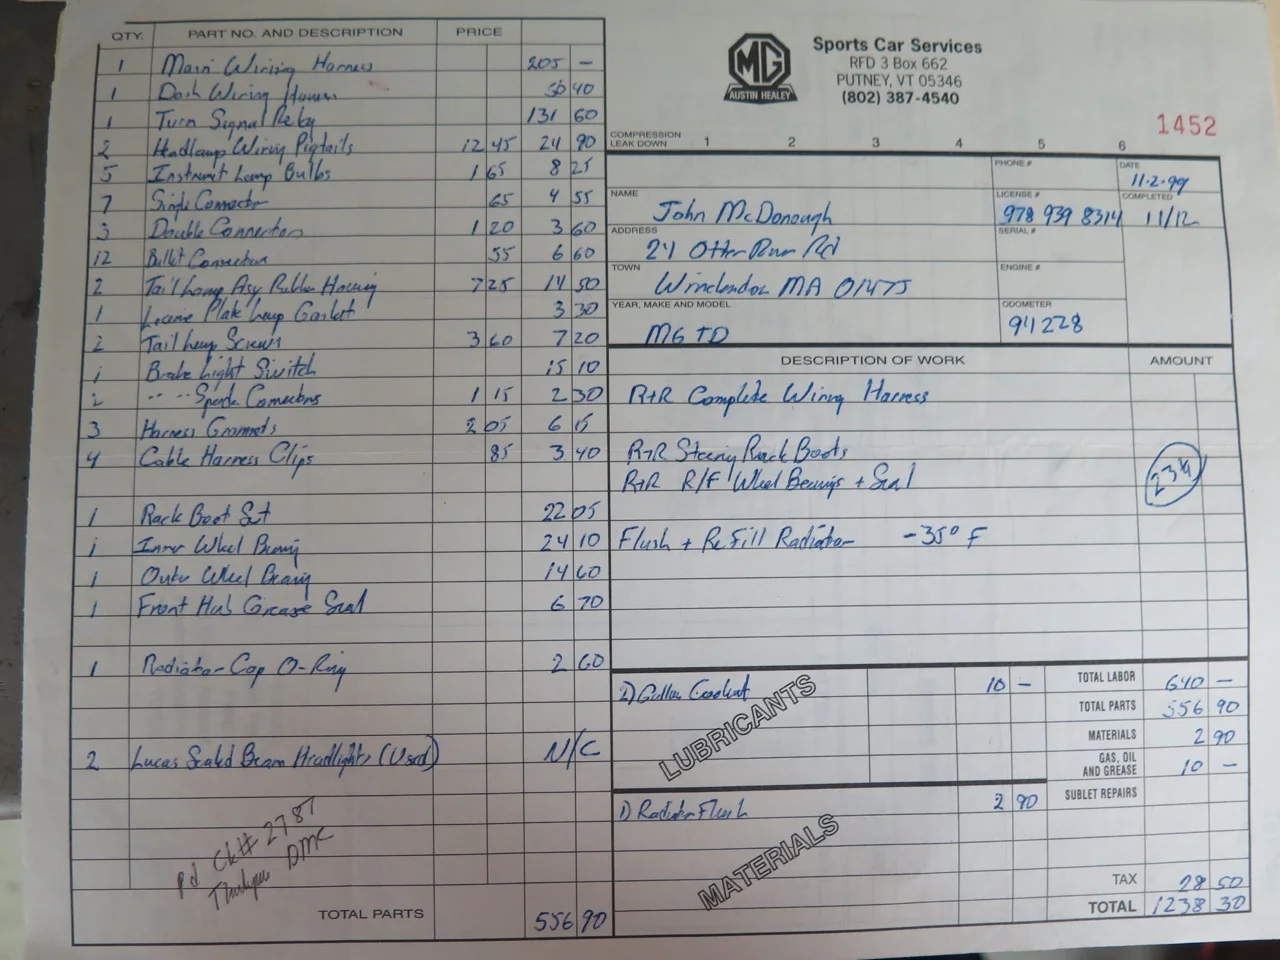 QTY. PART NO. AND DESCRIPTION PRICE
1 Main Wiring Harness 205 –
1 Dash Wiring Harness 56 40
1 Turn Signal Relay 131 60
2 Headlamp Wiring Pigtails 12 45 24 90
5 Instrument Lamp Bulbs 1 65 8 25
7 Single Connector 65 4 55
3 Double Connectors 1 20 3 60
12 Bullet Connectors 55 6 60
2 Tail Lamp Assy Rubber Housing 7 25 14 50
1 License Plate Lamp Gasket 3 30
2 Tail Lamp Screws 3 60 7 20
1 Brake Light Switch 15 10
2 " " Spade Connectors 1 15 2 30
3 Harness Grommets 2 05 6 15
4 Cable Harness Clips 85 3 40
1 Rack Boot Set 22 05
1 Inner Wheel Bearing 24 10
1 Outer Wheel Bearing 14 60
1 Front Hub Grease Seal 6 70
1 Radiator Cap O-Ring 2 60
2 Lucas Sealed Beam Headlights (Used) N/C
Pd Ck# 2787
DMC
TOTAL PARTS 556 90
MG
AUSTIN HEALEY
Sports Car Services
RFD 3 Box 662
PUTNEY, VT 05346
(802) 387-4540
1452
COMPRESSION
LEAK DOWN 1 2 3 4 5 6
PHONE # DATE
11-2-99
NAME LICENSE # COMPLETED
John McDonough 978 939 8314 11/12
ADDRESS SERIAL #
24 Otter River Rd
TOWN ENGINE #
Winchendon MA 01475
YEAR, MAKE AND MODEL ODOMETER
MG TD 94228
DESCRIPTION OF WORK AMOUNT
R+R Complete Wiring Harness
R+R Steering Rack Boots
R+R R/F Wheel Bearings + Seal
Flush + Refill Radiator -35° F
2) Gallon Coolant 10 –
LUBRICANTS
1) Radiator Flush 2 90
MATERIALS
TOTAL LABOR 640 –
TOTAL PARTS 556 90
MATERIALS 2 90
GAS, OIL
AND GREASE 10 –
SUBLET REPAIRS
TAX 28 50
TOTAL 1238 30